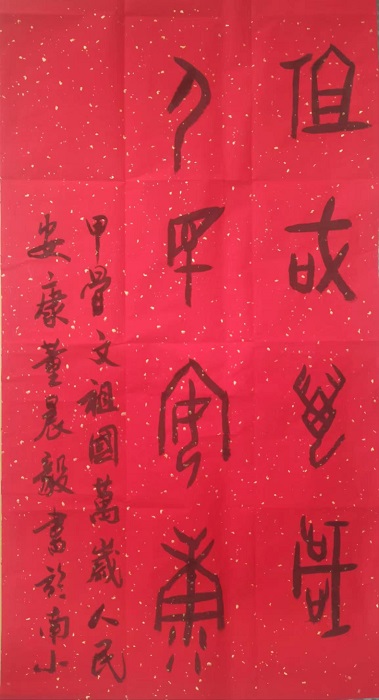 祖國萬歲
人民安康
甲骨文祖國萬歲人民
安康董晨毅書於南小